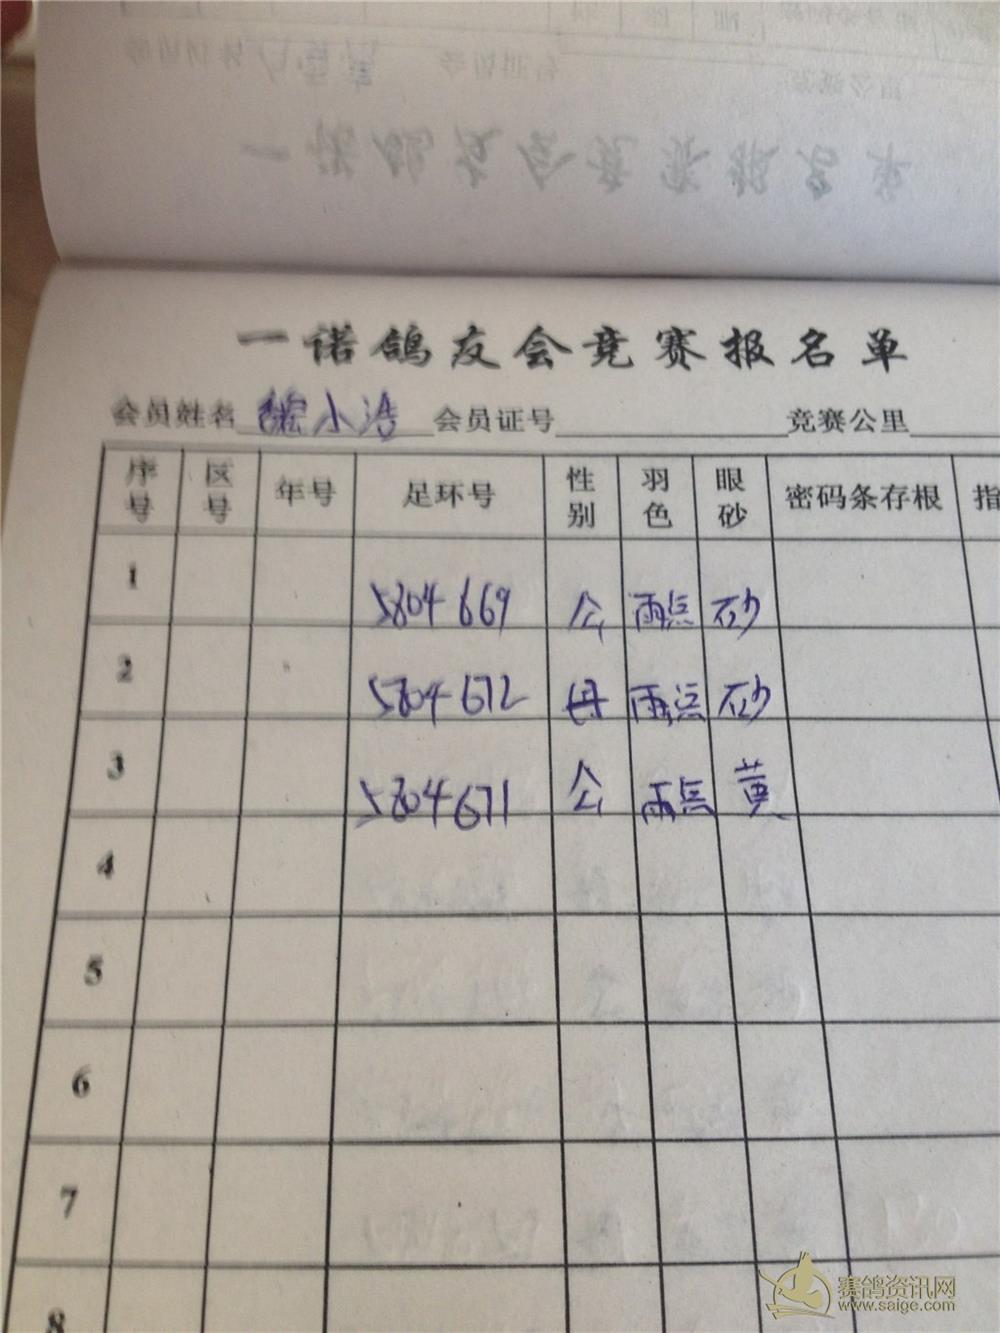 一诺鸽友会竞赛报名单
会员姓名 小浩 会员证号 竞赛公里
序号 区号 年号 足环号 性别 羽色 眼砂 密码条存根 指
1 5804669 公 雨点 砂
2 5804672 母 雨点 砂
3 5804671 公 雨点 黄
4
5
6
7
8
赛鸽资讯网
www.saige.com